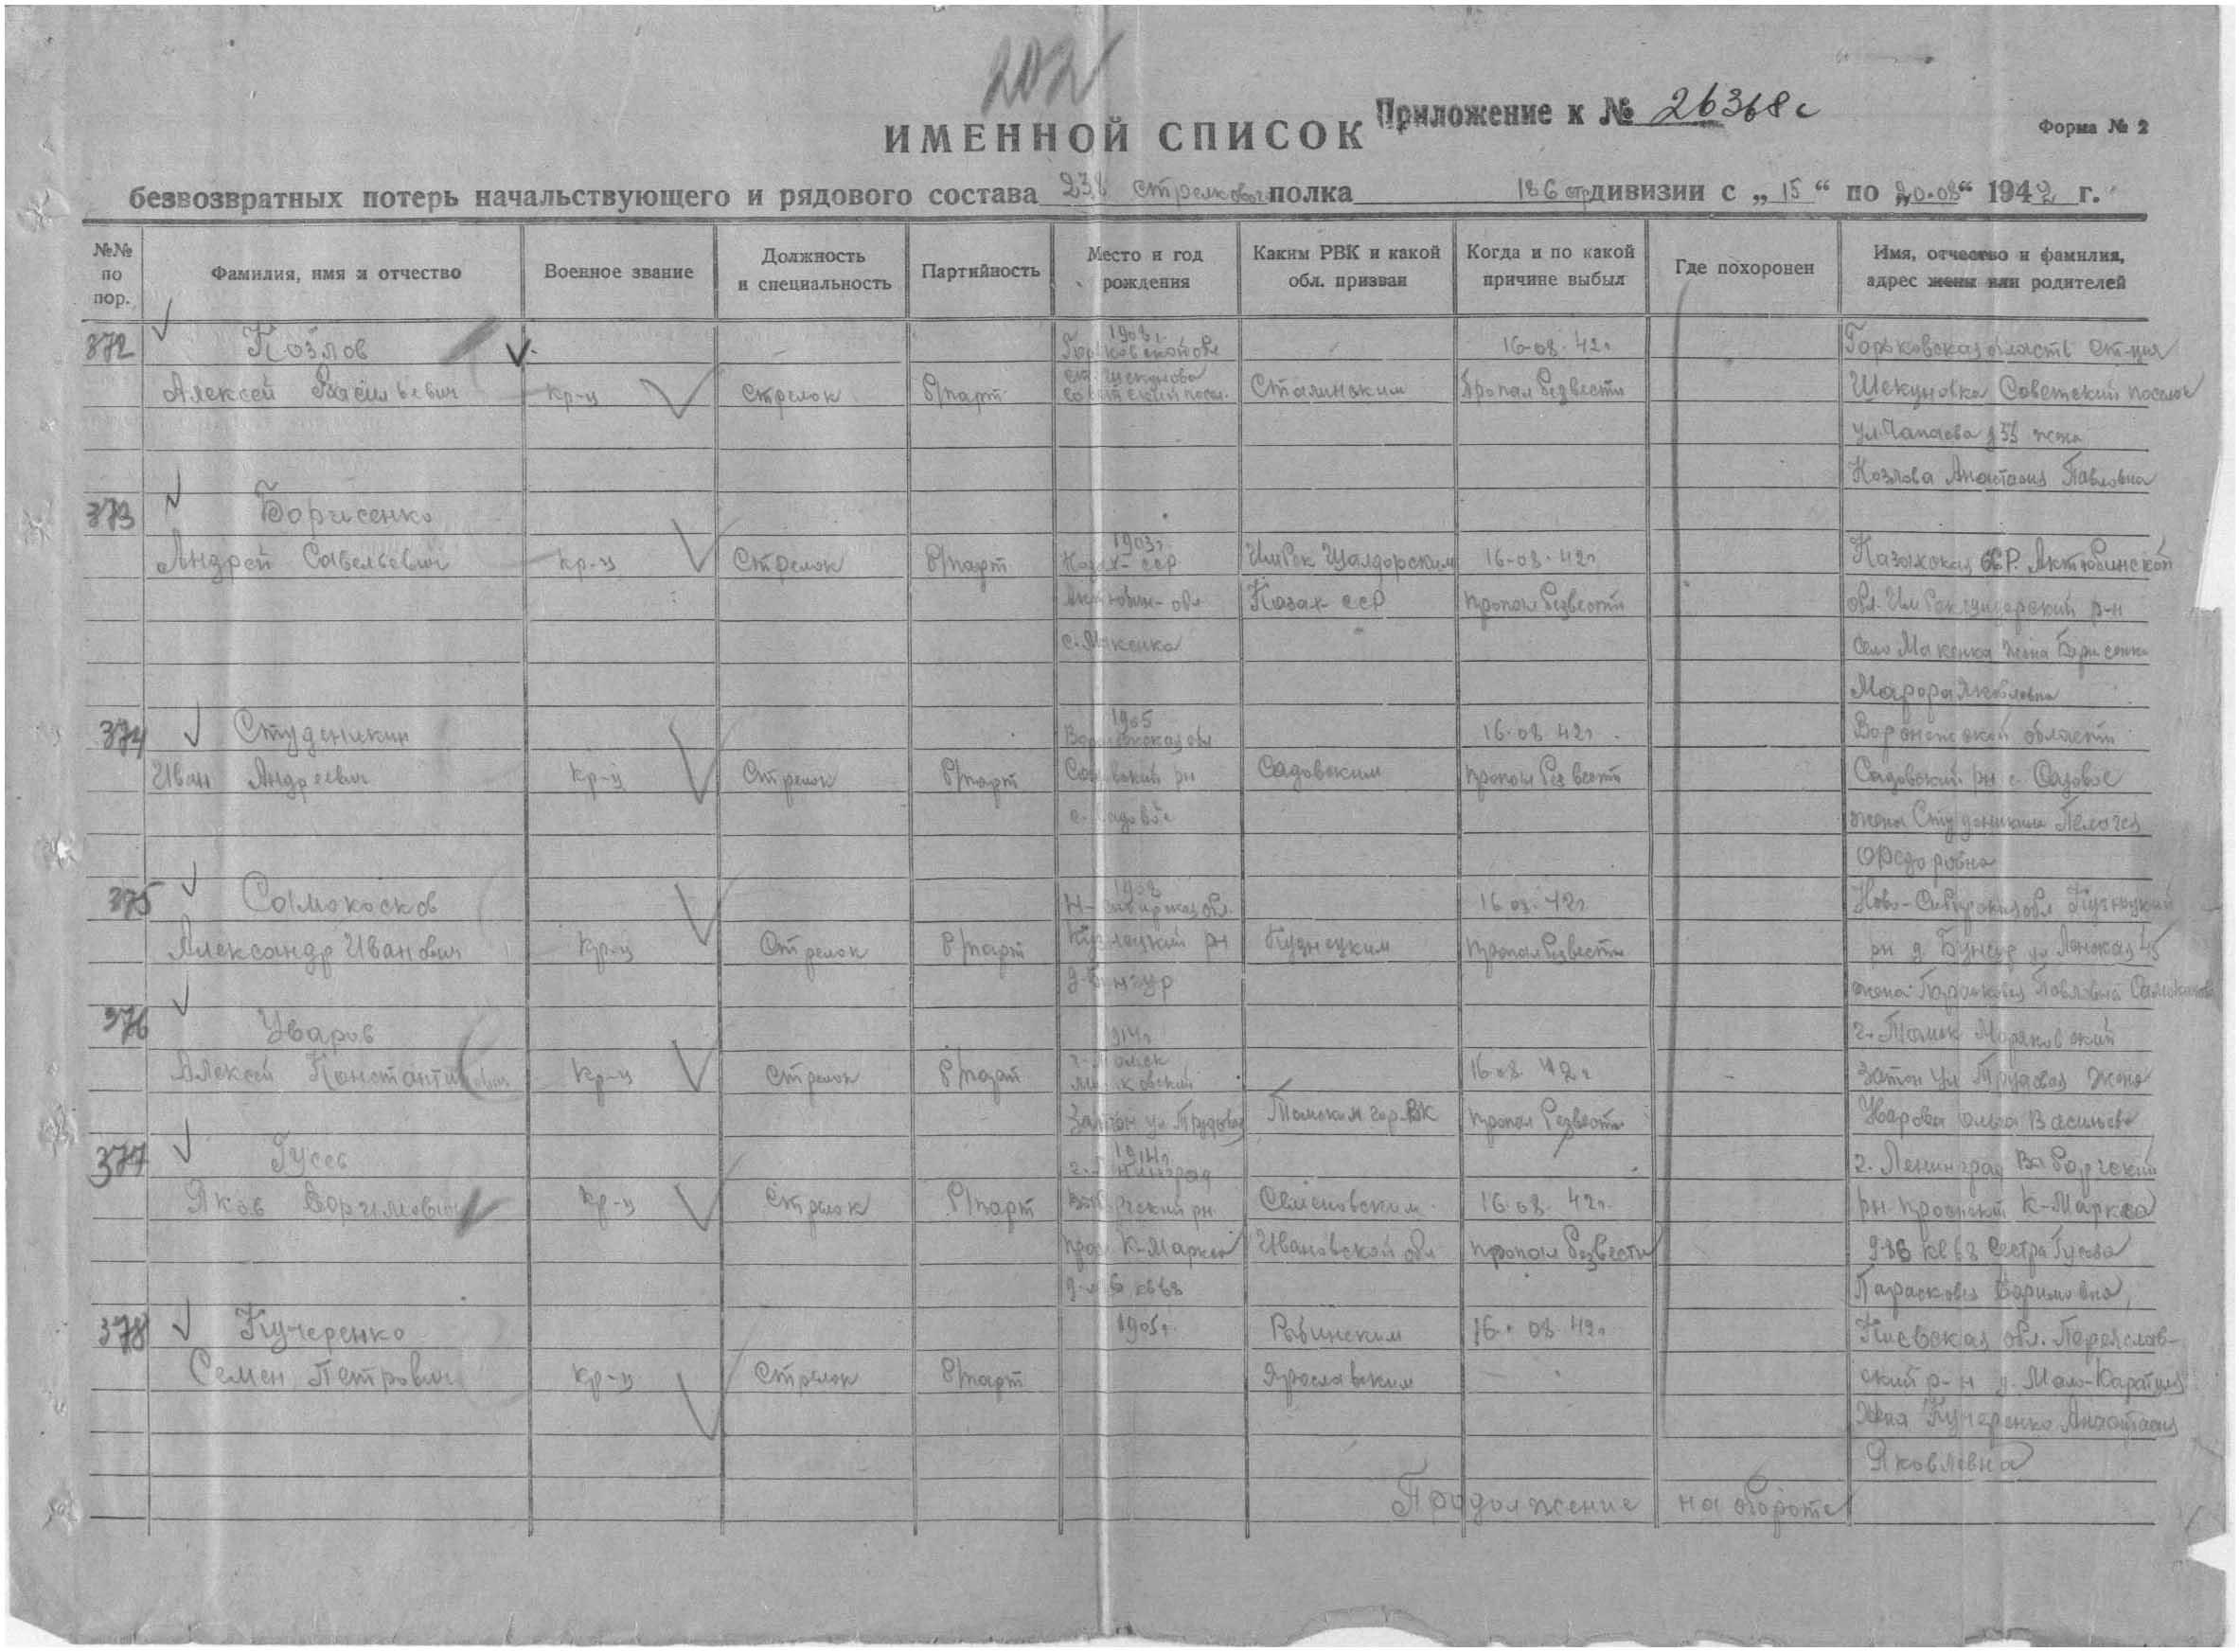 202
Приложение к № 26368с
ИМЕННОЙ СПИСОК
Форма № 2
безвозвратных потерь начальствующего и рядового состава 238 стрелков полка 186 стр дивизии с „15“ по „20.08“ 1942 г.
№№ по пор.
Фамилия, имя и отчество
Военное звание
Должность и специальность
Партийность
Место и год рождения
Каким РВК и какой обл. призван
Когда и по какой причине выбыл
Где похоронен
Имя, отчество и фамилия, адрес жены или родителей
372 Козлов 1908г. Горьковской обл 16-08.42г Горьковская область ст-ция
Алексей Васильевич кр-ц Стрелок б/парт Сталинским Пропал безвести Шекуновка Советский поселок
ул. Чапаева жена
Козлова Анастасия Павловна
373 Борисенко
Андрей Савельевич кр-ц Стрелок б/парт 1903г Казах-ССР 16-08.42г Казахская ССР. Актюбинской
обл Казах ССР пропал безвести обл. р-н
с. Макенка село Макенка жена Борисенко
Яковлевна
374 Студеникин 1905 Воронежская обл 16.08 42г Воронежской области
Иван Андреевич кр-ц Стрелок б/парт Садовский рн Садовским пропал безвести Садовский рн с. Садовое
с. Садовое жена Студеникина Пелагея
Федоровна
375 Самокосков Н-Сибирская обл. 16.08.42г Ново-Сибирская обл Кузнецкий
Александр Иванович кр-ц Стрелок б/парт Кузнецкий рн Кузнецким пропал безвести рн д. Бунгур ул
д. Бунгур жена Парасковья Павловна
376 Уваров 1914г г. Томск Моряковский
Алексей Константинович кр-ц стрелок б/парт г. Томск Моряковский 16.08 42г затон ул Трудовая жена
Затон ул. Трудовая Томским гор. ВК пропал безвести Уварова Ольга Васильев
377 Гусев 1914г. г. Ленинград г. Ленинград Выборгский
Яков кр-ц Стрелок б/парт Выборгский рн. Семеновским 16.08.42г. рн. проспект К-Маркса
прос. К-Маркса Ивановской обл пропал безвести сестра Гусева
Парасковья
378 Кучеренко 1905г. Рыбинским 16.08 42г Киевская обл. Переяслав-
Семен Петрович кр-ц Стрелок б/парт Ярославским ский р-н
жена Кучеренко Анастасия
Яковлевна
Продолжение на обороте